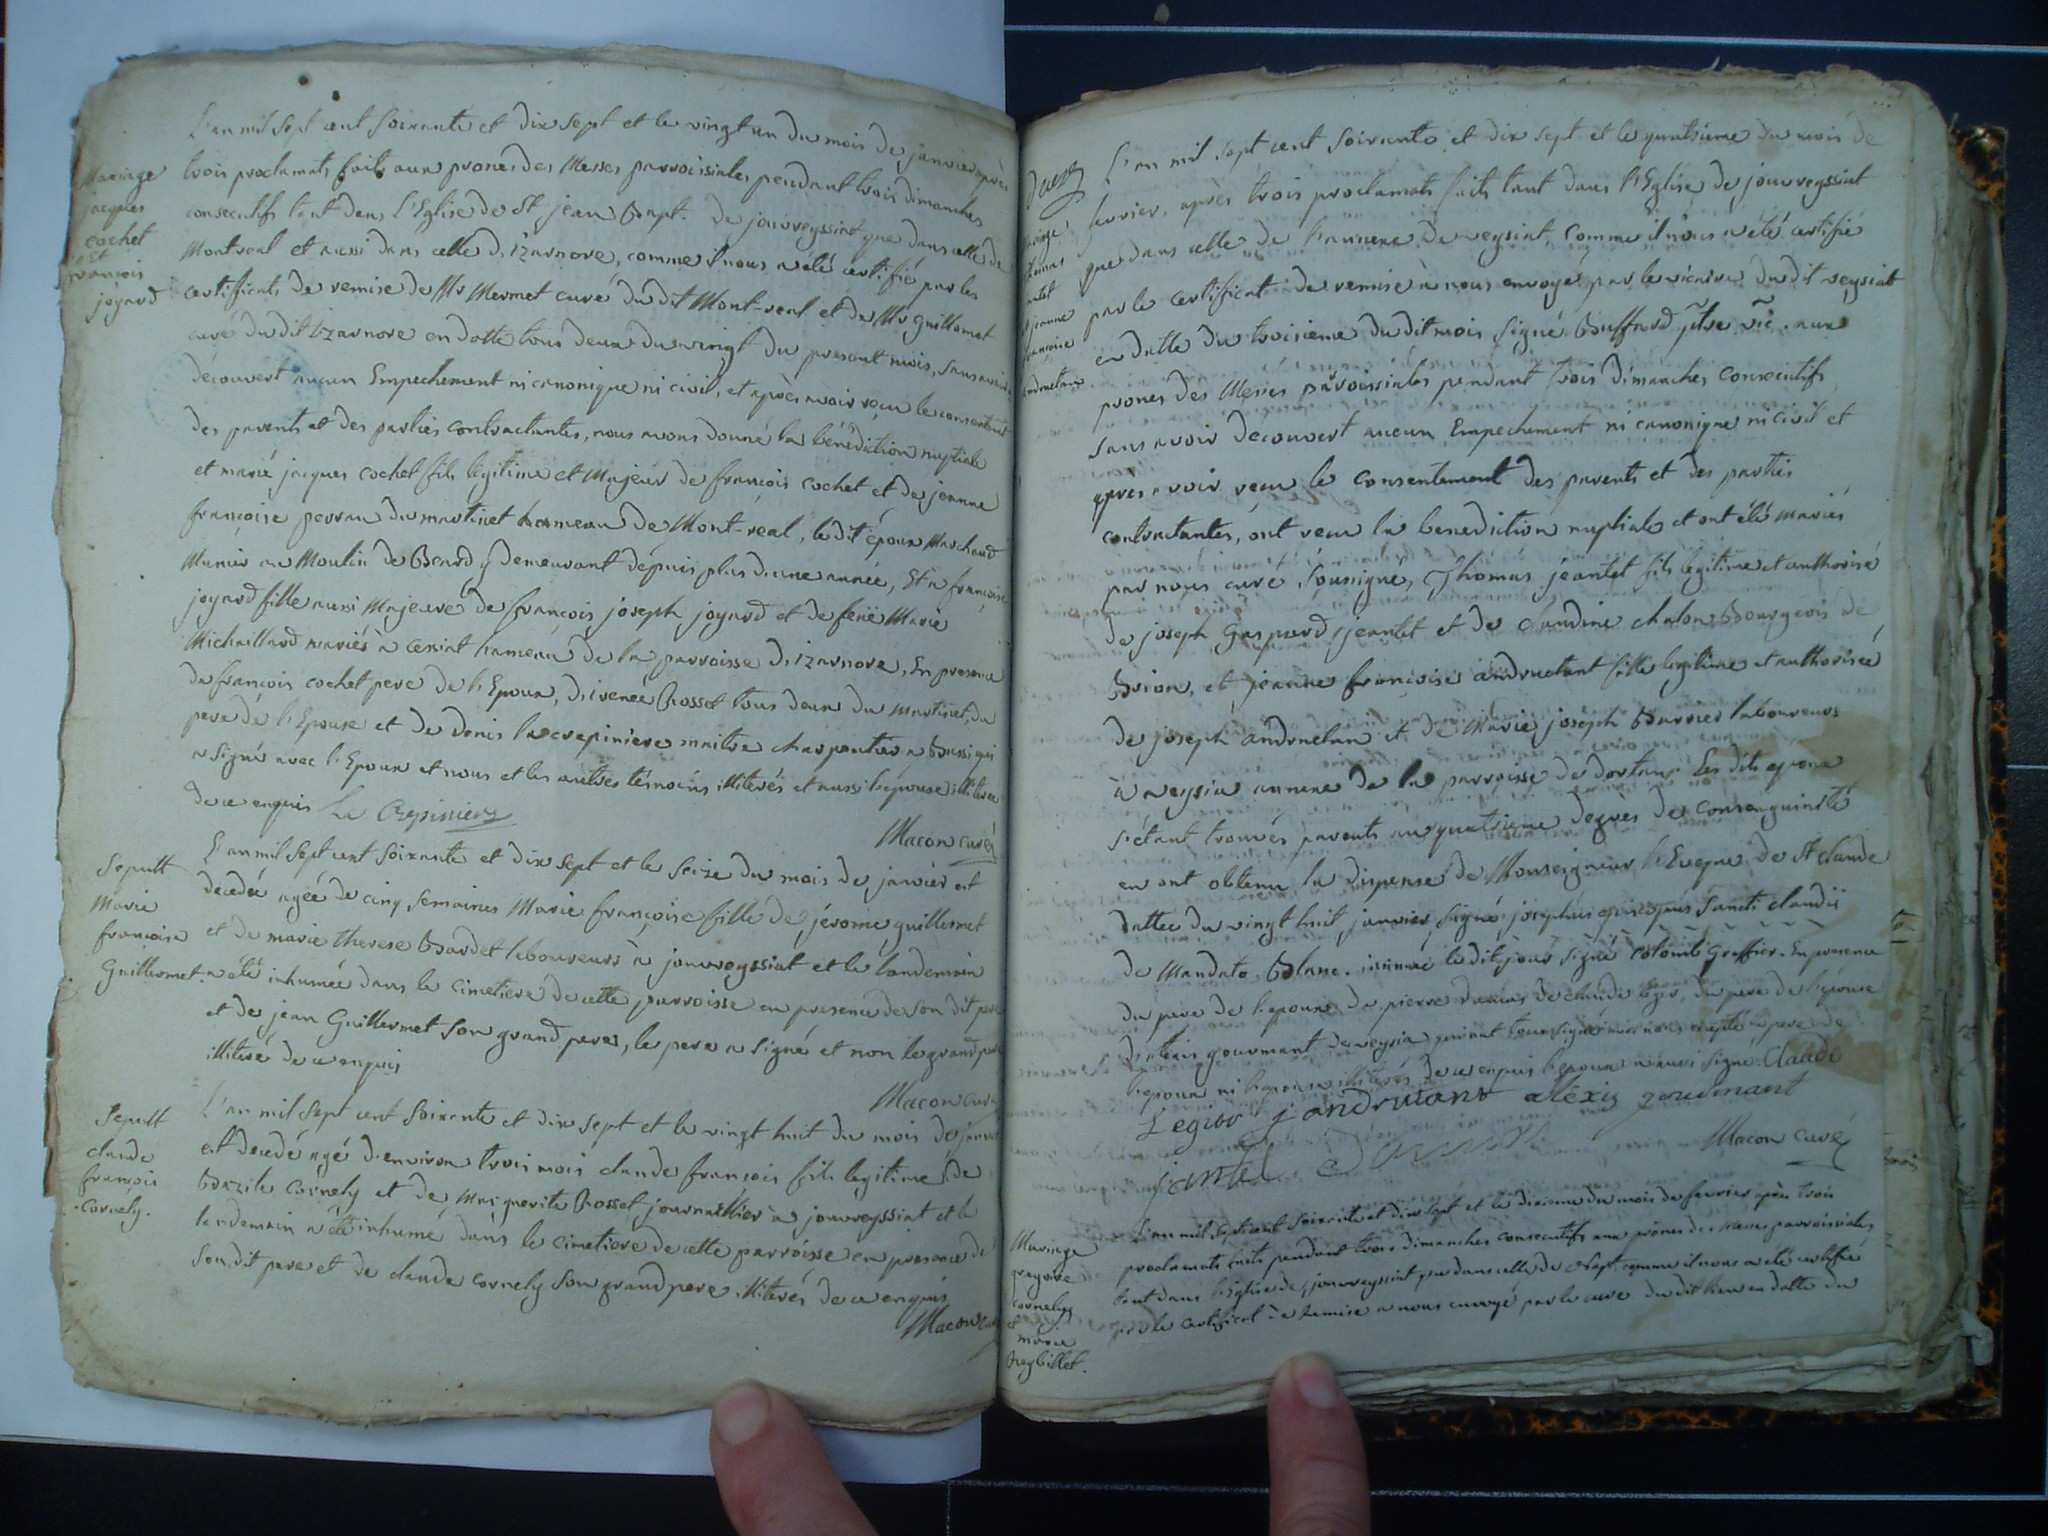 L'an mil sept cent soixante et dix sept et le vingt un du mois de janvier après
Mariage
jacques
cochet
et
françois
joyard
trois proclamats faits aux prones des Messes parroissiales pendant trois dimanches
consecutifs tant dans l'Eglise de St jean Bapt. de jouvreyssiat que dans celle de
Montreal et aussi dans celle d'izarnore, comme il nous a été certifié par les
certificats de remise de Mr Mermet curé du dit Mont-real et de Mr Guillemet
curé du dit izarnore en datte tous deux du vingt du present mois, sans avoir
découvert aucun Empechement ni canonique ni civil, et après avoir reçu le consentement
des parents et des parties contractantes, nous avons donné la bénédiction nuptiale
et marié jacques cochet fils légitime et Majeur de françois cochet et de jeanne
françoise perrau du martinet hameau de Mont-real, le dit époux Marchand
Munier au Moulin de Brard y demeurant dépuis plus d'une année, Et a françoise
joyard fille aussi Majeure de françois joseph joyard et de feüe Marie
Michaillard mariés à ceniat hameau de la parroisse d'izarnore, En presence
de françois cochet pere de l'Epoux, d'irenée Rosset tous deux du martinet, du
pere de l'Epouse et de denis lacrepiniere maitre charpentier a Bussi qui
a signé avec l'Epoux et nous et les autres témoins illiterés et aussi l'epouse illiterée
de ce enquis La Crepiniere
Macon curé
Sepult
Marie
françoise
Guillermet
L'an mil sept cent soixante et dix sept et le seize du mois de janvier est
decedée agée de cinq semaines Marie françoise fille de jérome guillermet
et de marie therese Bardet laboureurs à jouvreyssiat et le landemain
a été inhumée dans le cimetiere de cette parroisse en presence de son dit pere
et de jean Guillermet son grand pere, le pere a signé et non le grand pere
illiteré de ce enquis
Macon curé
Sepult
claude
françois
Cornély.
L'an mil sept cent soixante et dix sept et le vingt huit du mois de janvier
est decedé agé d'environ trois mois claude françois fils legitime de
Bazile Cornely et de Marguerite Rosset journallier à jouvreyssiat et le
landemain a été inhumé dans le cimetiere de cette parroisse en presence de
son dit pere et de claude cornely son grand pere illiterés de ce enquis
Macon curé
L'an mil sept cent soixante et dix sept et le quatrieme du mois de
Mariage
thomas
jantet
et jeanne
françoise
andruetan
fevrier, après trois proclamats faits tant dans l'Eglise de jouvreyssiat
que dans celle de l'annexe de veysiat, comme il nous a été certifié
par le certificat de remise à nous envoyé par le vicaire du dit veysiat
en datte du troisieme du dit mois signé Buffard ptre vic. aux
prones des Messes parroissiales pendant trois dimanches consecutifs
sans avoir découvert aucun Empechement ni canonique ni civil et
apres avoir reçu le consentement des parents et des parties
contractantes, ont reçu la benediction nuptiale et ont été mariés
par nous curé soussigné, Thomas jeantet fils legitime et authorisé
de joseph Gaspard jeantet et de claudine chalon Bourgeois de
Brion, et jeanne françoise andruetant fille legitime et authorisée
de joseph andruetan et de Marie joseph Barrier laboureurs
à veysia annexe de la parroisse de dortan. Les dits epoux
s'étant trouvés parents au quatrieme degrés de consanguinité
en ont obtenu la dispense de Monseigneur l'Eveque de St claude
dattée du vingt huit janvier signé josephus episcopus sancti claudii
de Mandato Blanc. insinué le dit jour signé colomb Greffier. En presence
du pere de l'epoux, de pierre de claude leger, du pere de l'epouse
d'alexis gourmant de veysia qui ont tous signé avec nous excepté le pere de
l'epoux ni l'epouse illiterés de ce enquis l'epoux a aussi signé. Claude
Legier j andrutant aléxis gourmant
jantet
Macon curé
Mariage
gregoire
Cornely
et
marie
Reybillet.
L'an mil sept cent soixante et dix sept et le dixieme du mois de fevrier après trois
proclamats faits pendant trois dimanches consecutifs aux prones des messes parroissiales
tant dans l'Eglise de jouvreyssiat que dans celle de comme il nous a été certifié
par le certificat de remise a nous envoyé par le curé du dit lieu en datte du